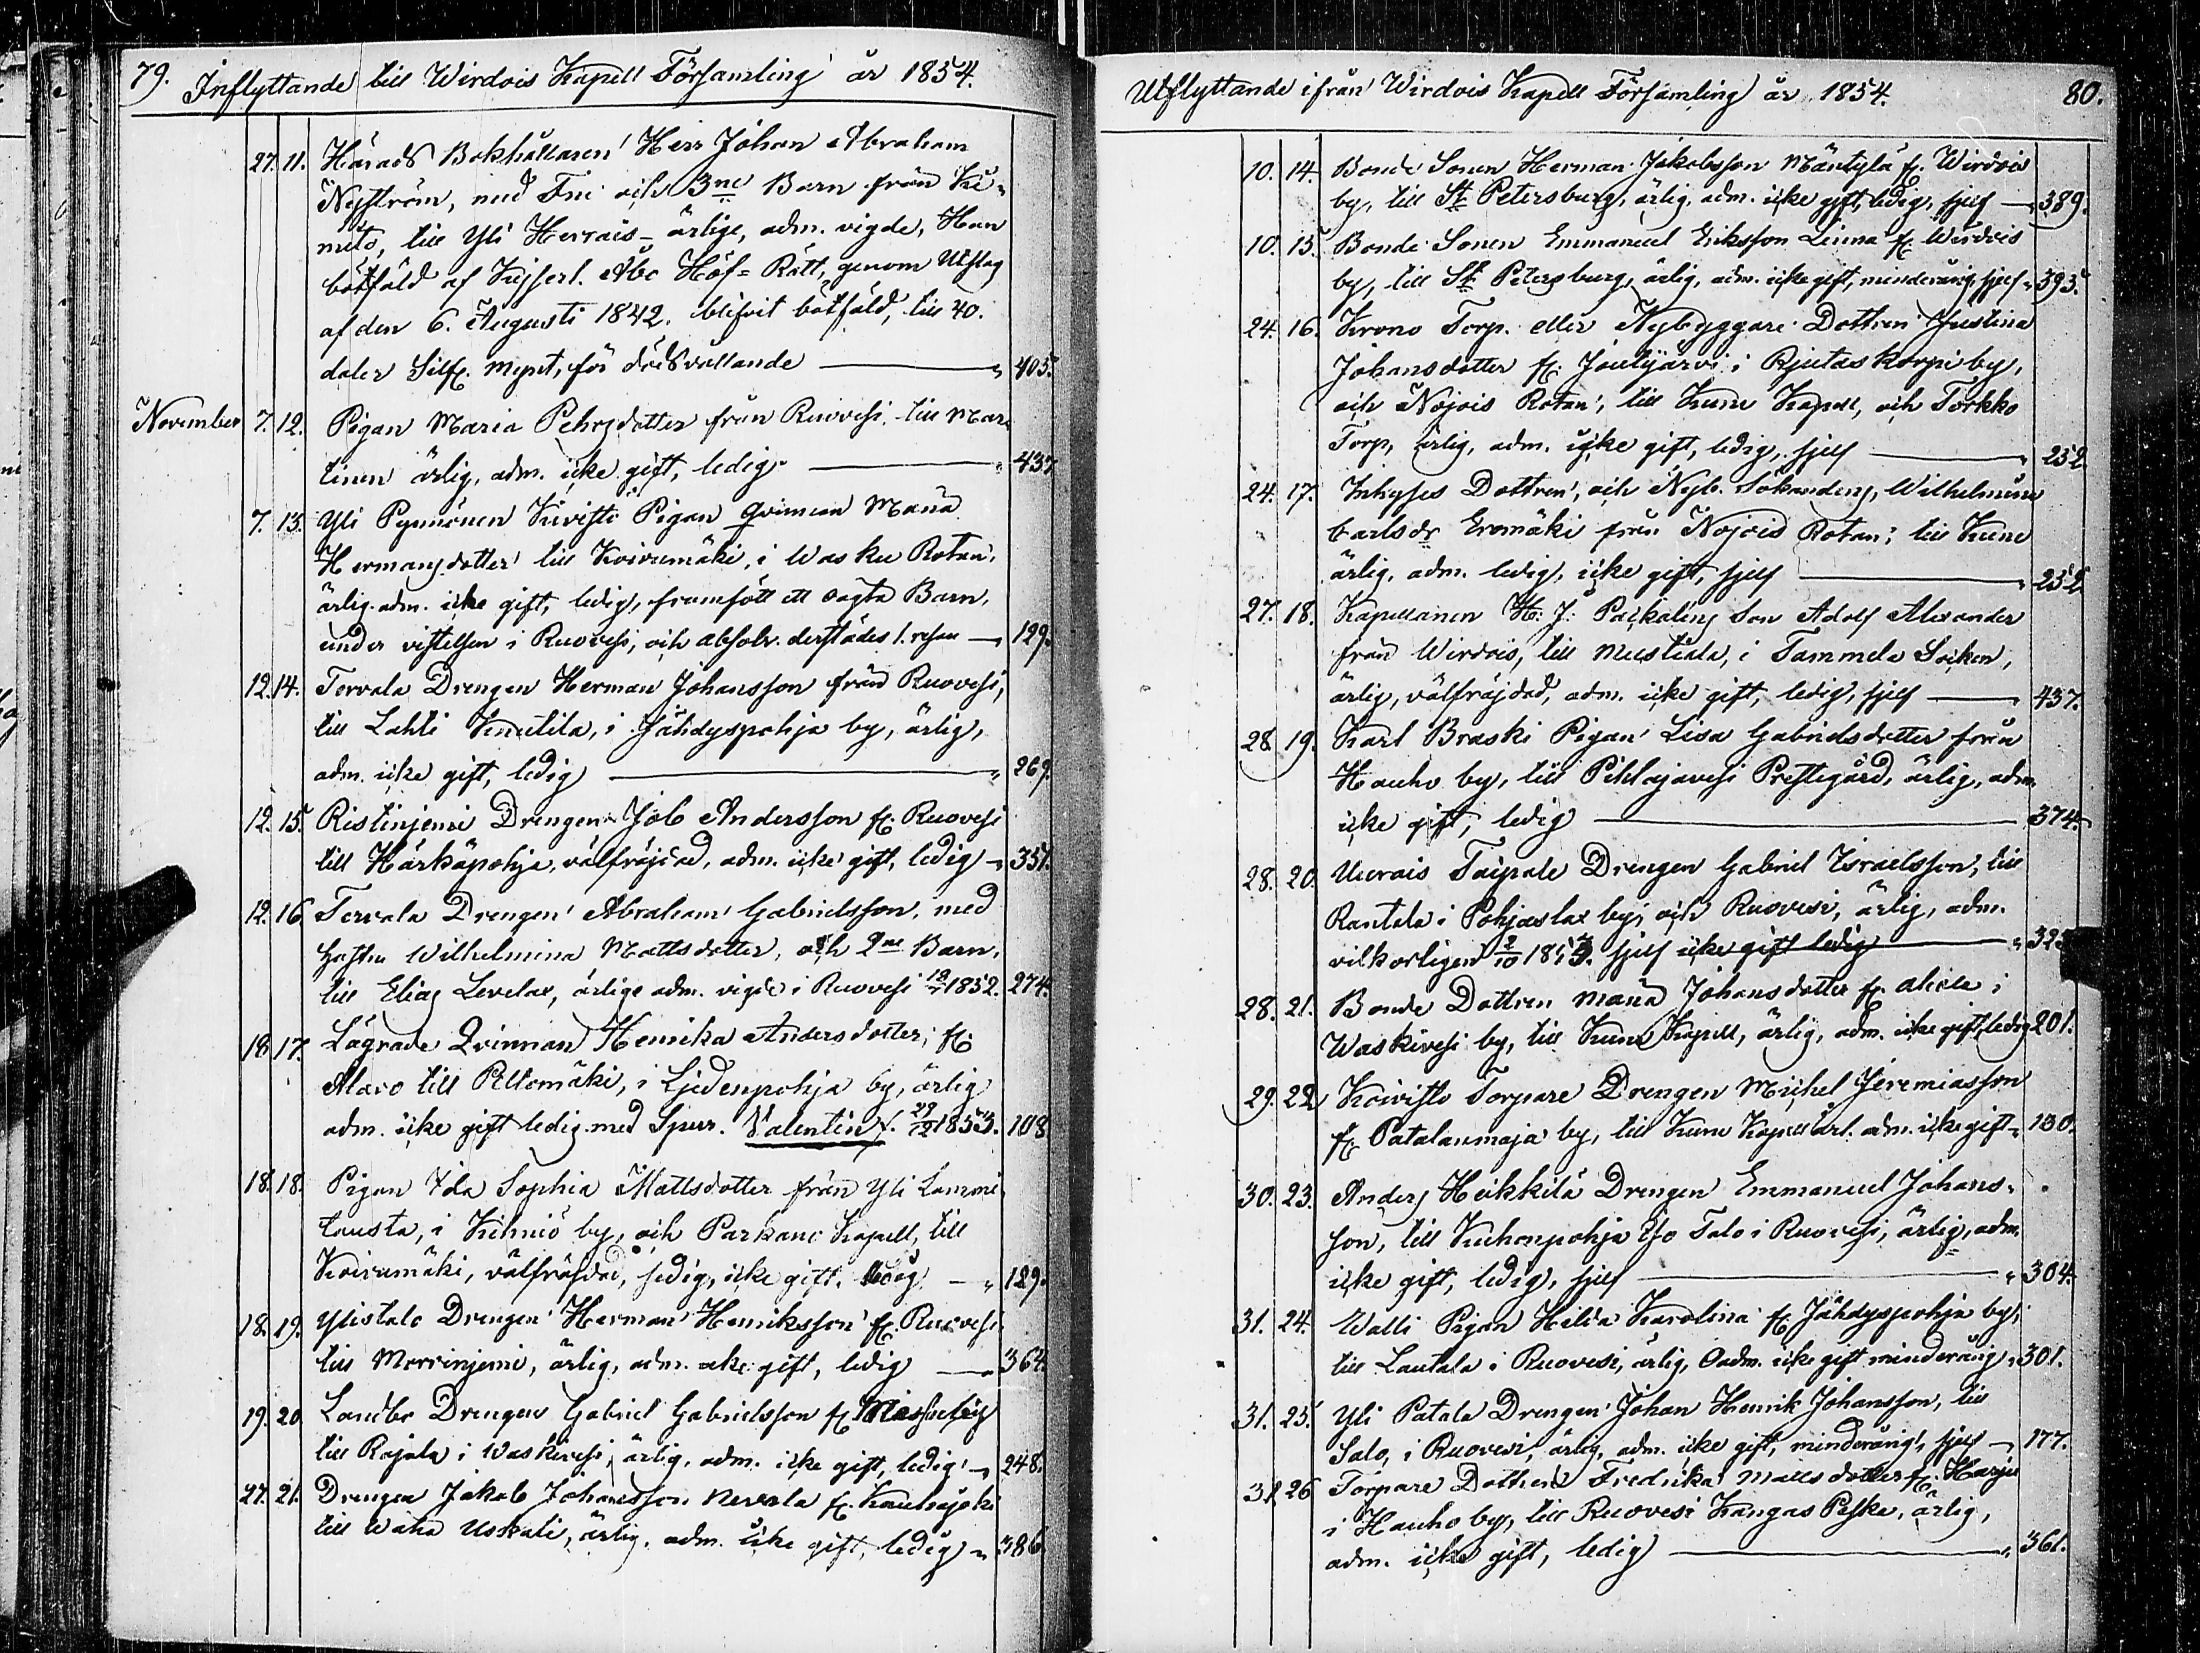 79. Inflyttande till Wirdois Kapell Församling år 1854.
27. 11. Härads Bokhållaren Herr Johan Abraham
Nyström, med Fru och 3ne Barn från
till Yli Herrais - ärlige, adm. vigde, Han
bötfäld af Kejserl. Åbo Hof-Rätt, genom Utslag
af den 6. Augusti 1842. blifvit bötfäld, till 40.
daler Silfr. mynt, för dödsvållande 405.
November 7. 12. Pigan Maria Pehrsdotter från Ruovesi till Mar-
tinen ärlig, adm. icke gift, ledig 437
7. 13. Yli Pynnönen Kivistö Pigan qvinnan Maria
Hermansdotter till Koivumäki, i Wasku Rotan,
ärlig. adm. icke gift, ledig, framfött ett oägta Barn,
under vistelsen i Ruovesi, och absolv. derstädes 1. resan 129.
12. 14. Tervala Drengen Herman Johansson från Ruovesi,
till Lahti Knuttila, i Jähdyspohja by, ärlig,
adm. icke gift, ledig 269.
12. 15. Ristinjemi Drengen Job Andersson fr. Ruovesi
till Härköpohja, välfräjdad, adm. icke gift, ledig 351.
12. 16. Tervala Drengen Abraham Gabrielsson, med
Hustru Wilhelmina Mattsdotter, och 2ne Barn,
till Elias Levelax, ärlige adm. vigde i Ruovesi 1852. 274.
18. 17. Lägrade Qvinnan Henrika Andersdotter, fr.
Alavo till Peltomäki, i Ljedenpohja by, ärlig
adm. icke gift ledig. med Spur. Valentin f. 29/12 1853. 108
18. 18. Pigan Ida Sophia Mattsdotter från Yli Lammi-
tausta, i Kihniö by, och Parkano Kapell, till
Koivumäki, välfräjdad, ledig, icke gift, 129.
18. 19. Ylistalo Drengen Herman Henriksson fr. Ruovesi
till Morrinjemi, ärlig, adm. icke gift, ledig 364.
19. 20. Landbo Drengen Gabriel Gabrielsson fr.
till Rajala i Waskivesi, ärlig, adm. icke gift, ledig 248.
27. 21. Drengen Jakob Johansson Nevala fr. Kauhajoki
till Waha Uskali, ärlig, adm. icke gift, ledig 386.
Utflyttande ifrån Wirdois Kapell Församling år 1854. 80.
10. 14. Bonde Sonen Herman Jakobsson Mäntylä fr. Wirdois
by, till St Petersburg, ärlig, adm. icke gift, ledig, sjelf 389.
10. 15. Bonde Sonen Emmanuel Eriksson Linna fr. Wirdois
by, till St Petersburg, ärlig, adm. icke gift, minderårig, sjelf 393.
24. 16. Krono Torp. eller Nybyggare Dottren Justina
Johansdotter fr. Joutijärvi i Rjutaskorpi by,
och Nojois Rotan, till Kuru Kapell, och Torkko
Torp, ärlig, adm. icke gift, ledig, sjelf 252
24. 17. Inhyses Dottren, och Nyb. Sökandens, Wilhelmina
Carlsdr Eromäki från Nojois Rotan, till Kuru
ärlig, adm. ledig, icke gift, sjelf 252
27. 18. Kapellanen H. J. Packalens Son Adolf Alexander
från Wirdois, till Mustiala, i Tammela Socken,
ärlig, välfräjdad, adm. icke gift, ledig, sjelf 437.
28. 19. Karl Braski Pigan Lisa Gabrielsdotter från
Hauho by, till Pihlajavesi Prestegård, ärlig, adm.
icke gift, ledig 374.
28. 20. Uurais Taipale Drengen Gabriel Israelsson, till
Rantala i Pohjaslax by, och Ruovesi, ärlig, adm.
vilkorligen 2/10 185 . sjelf icke gift ledig
28. 21. Bonde Dottren Maria Johansdotter fr. i
Waskivesi by, till Kuru Kapell, ärlig, adm. icke gift, ledig 201.
29. 22. Koivisto Torpare Drengen Michel Jeremiasson
fr. Patalanmaja by, till Kuru Kapell ärl. adm. icke gift 130.
30. 23. Anders Heikkilä Drengen Emmanuel Johans-
son, till Kuhonpohja Iso Talo i Ruovesi, ärlig, adm.
icke gift, ledig, sjelf 304.
31. 24. Walli Pigan Hilda Karolina fr. Jähdyspohja by,
till Lautala i Ruovesi, ärlig, Oadm. icke gift minderårig 301.
31. 25. Yli Patala Drengen Johan Henrik Johansson, till
Salo, i Ruovesi, ärlig, adm. icke gift, minderårig, sjelf 177.
31. 26. Torpare Dottren Fredrika Mattsdotter fr. Harju
i Hauho by, till Ruovesi Kangas Peska, ärlig,
adm. icke gift, ledig 361.